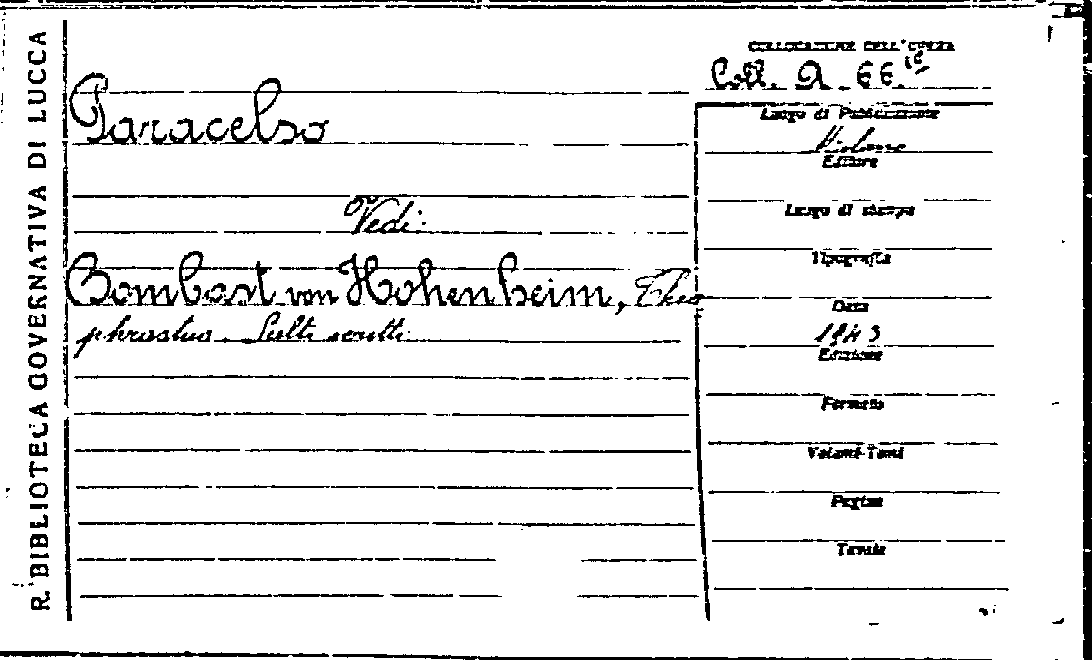 R. BIBLIOTECA GOVERNATIVA DI LUCCA
Paracelso
Vedi:
Bombast von Hohenheim, Theo
phrastus. Scritti
COLLOCAZIONE DELL'OPERA
Coll. A. 66.
Luogo di Pubblicazione
Milano
Editore
Luogo di stampa
Tipografia
Data
1943
Edizione
Formato
Volumi-Tomi
Pagine
Tavole